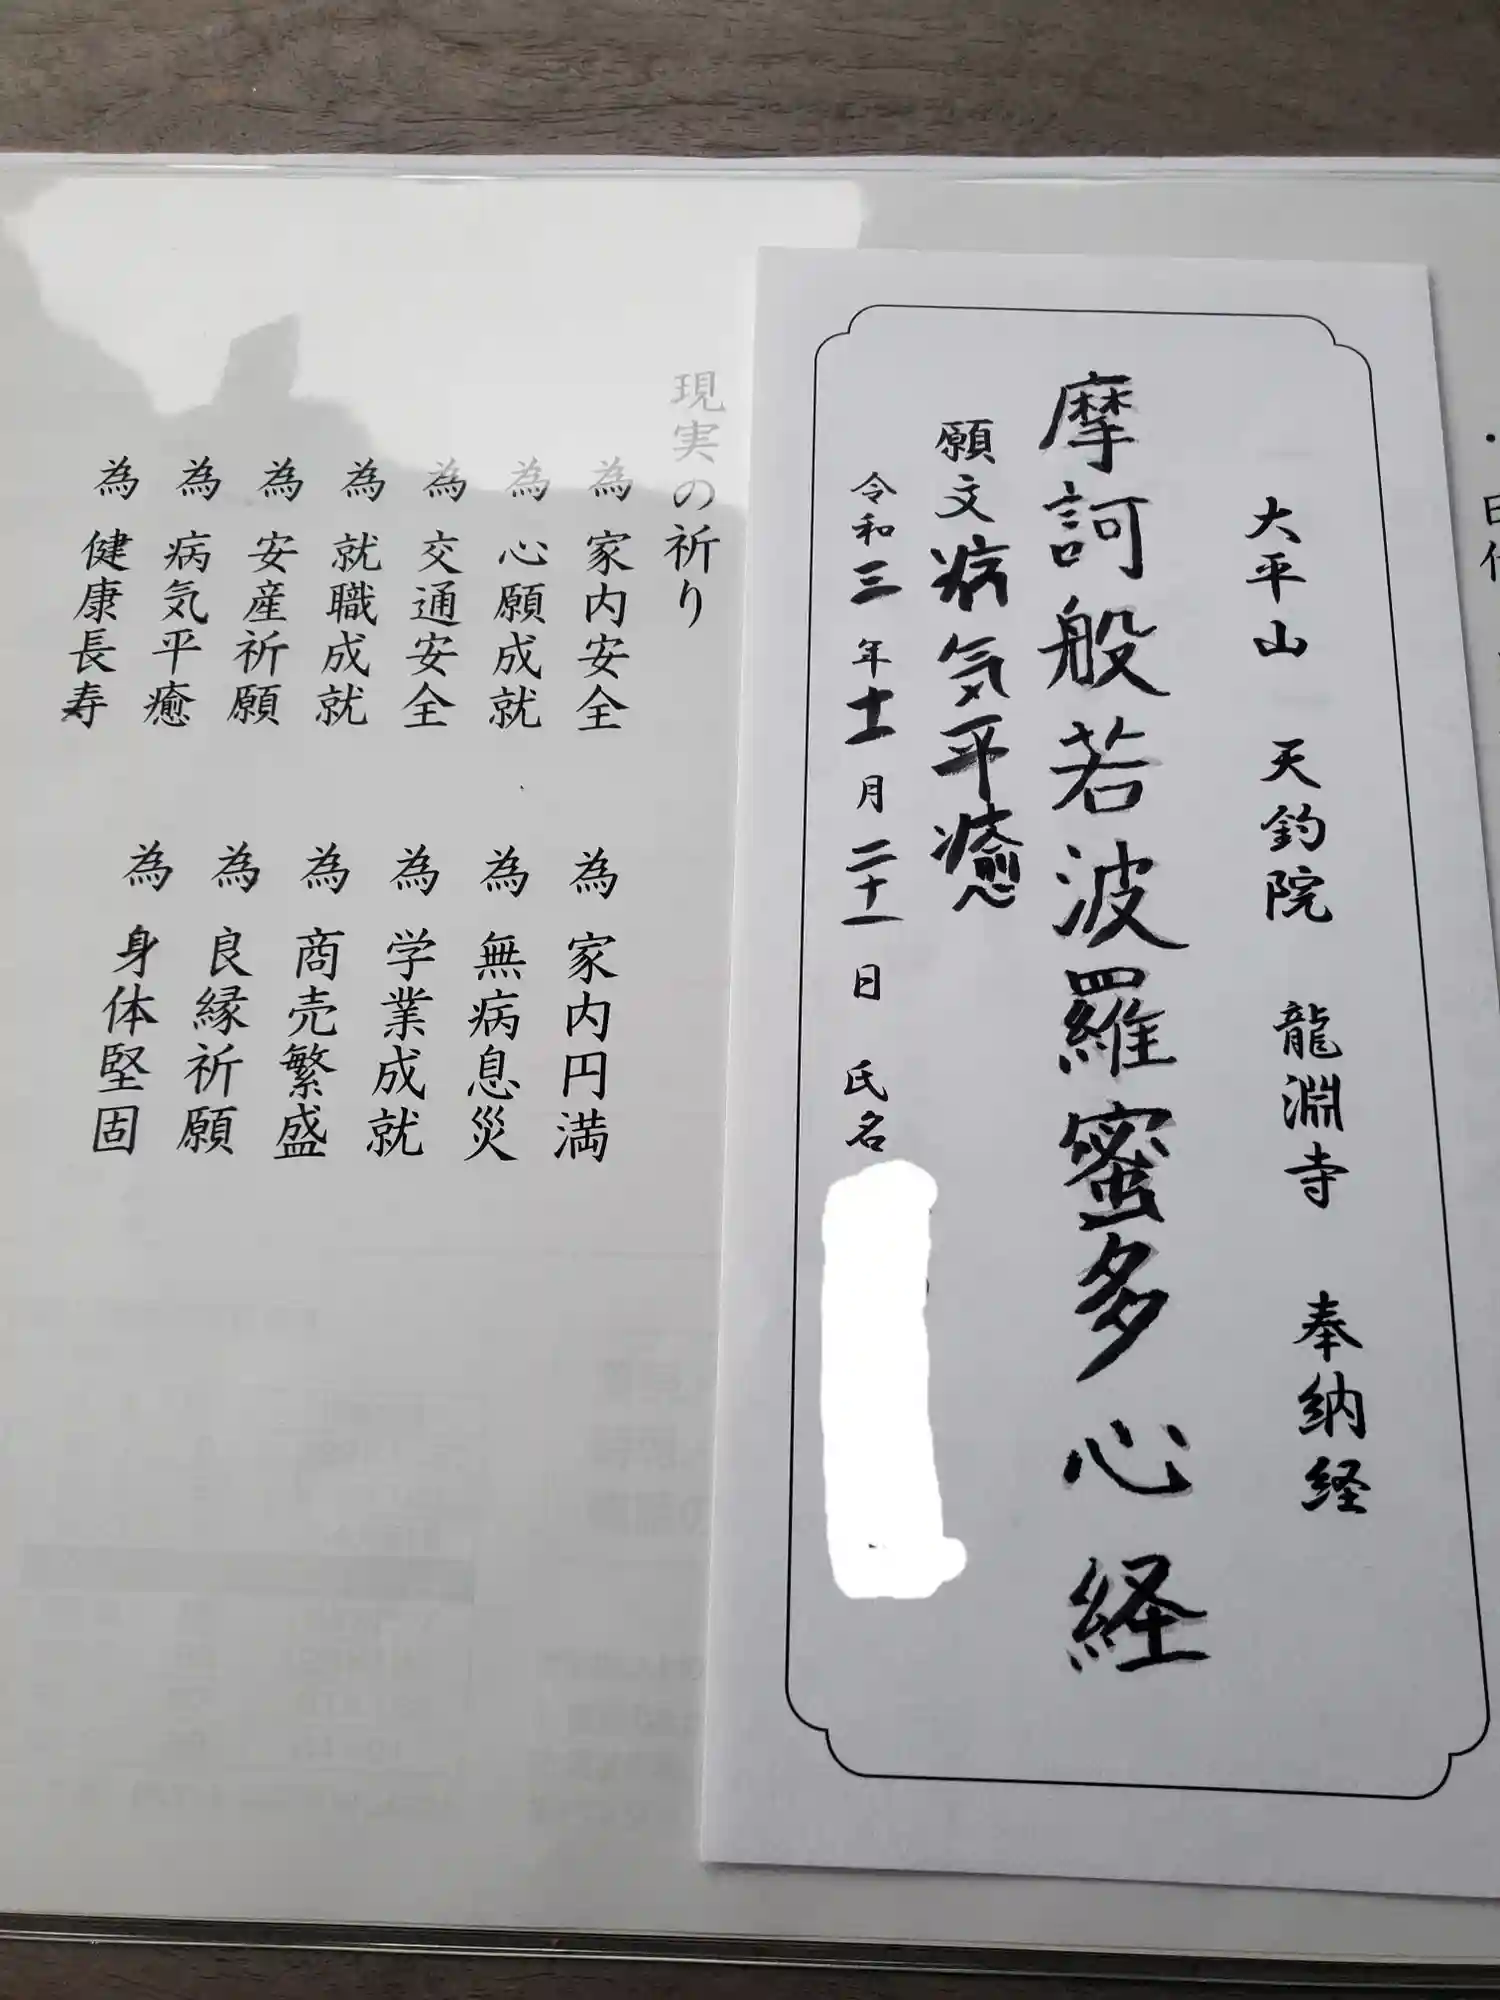 大平山 天釣院 龍淵寺 奉納経
摩訶般若波羅蜜多心経
願文 病気平癒
令和三年十一月二十一日 氏名
現実の祈り
為 家内安全
為 心願成就
為 交通安全
為 就職成就
為 安産祈願
為 病気平癒
為 健康長寿
為 家内円満
為 無病息災
為 学業成就
為 商売繁盛
為 良縁祈願
為 身体堅固